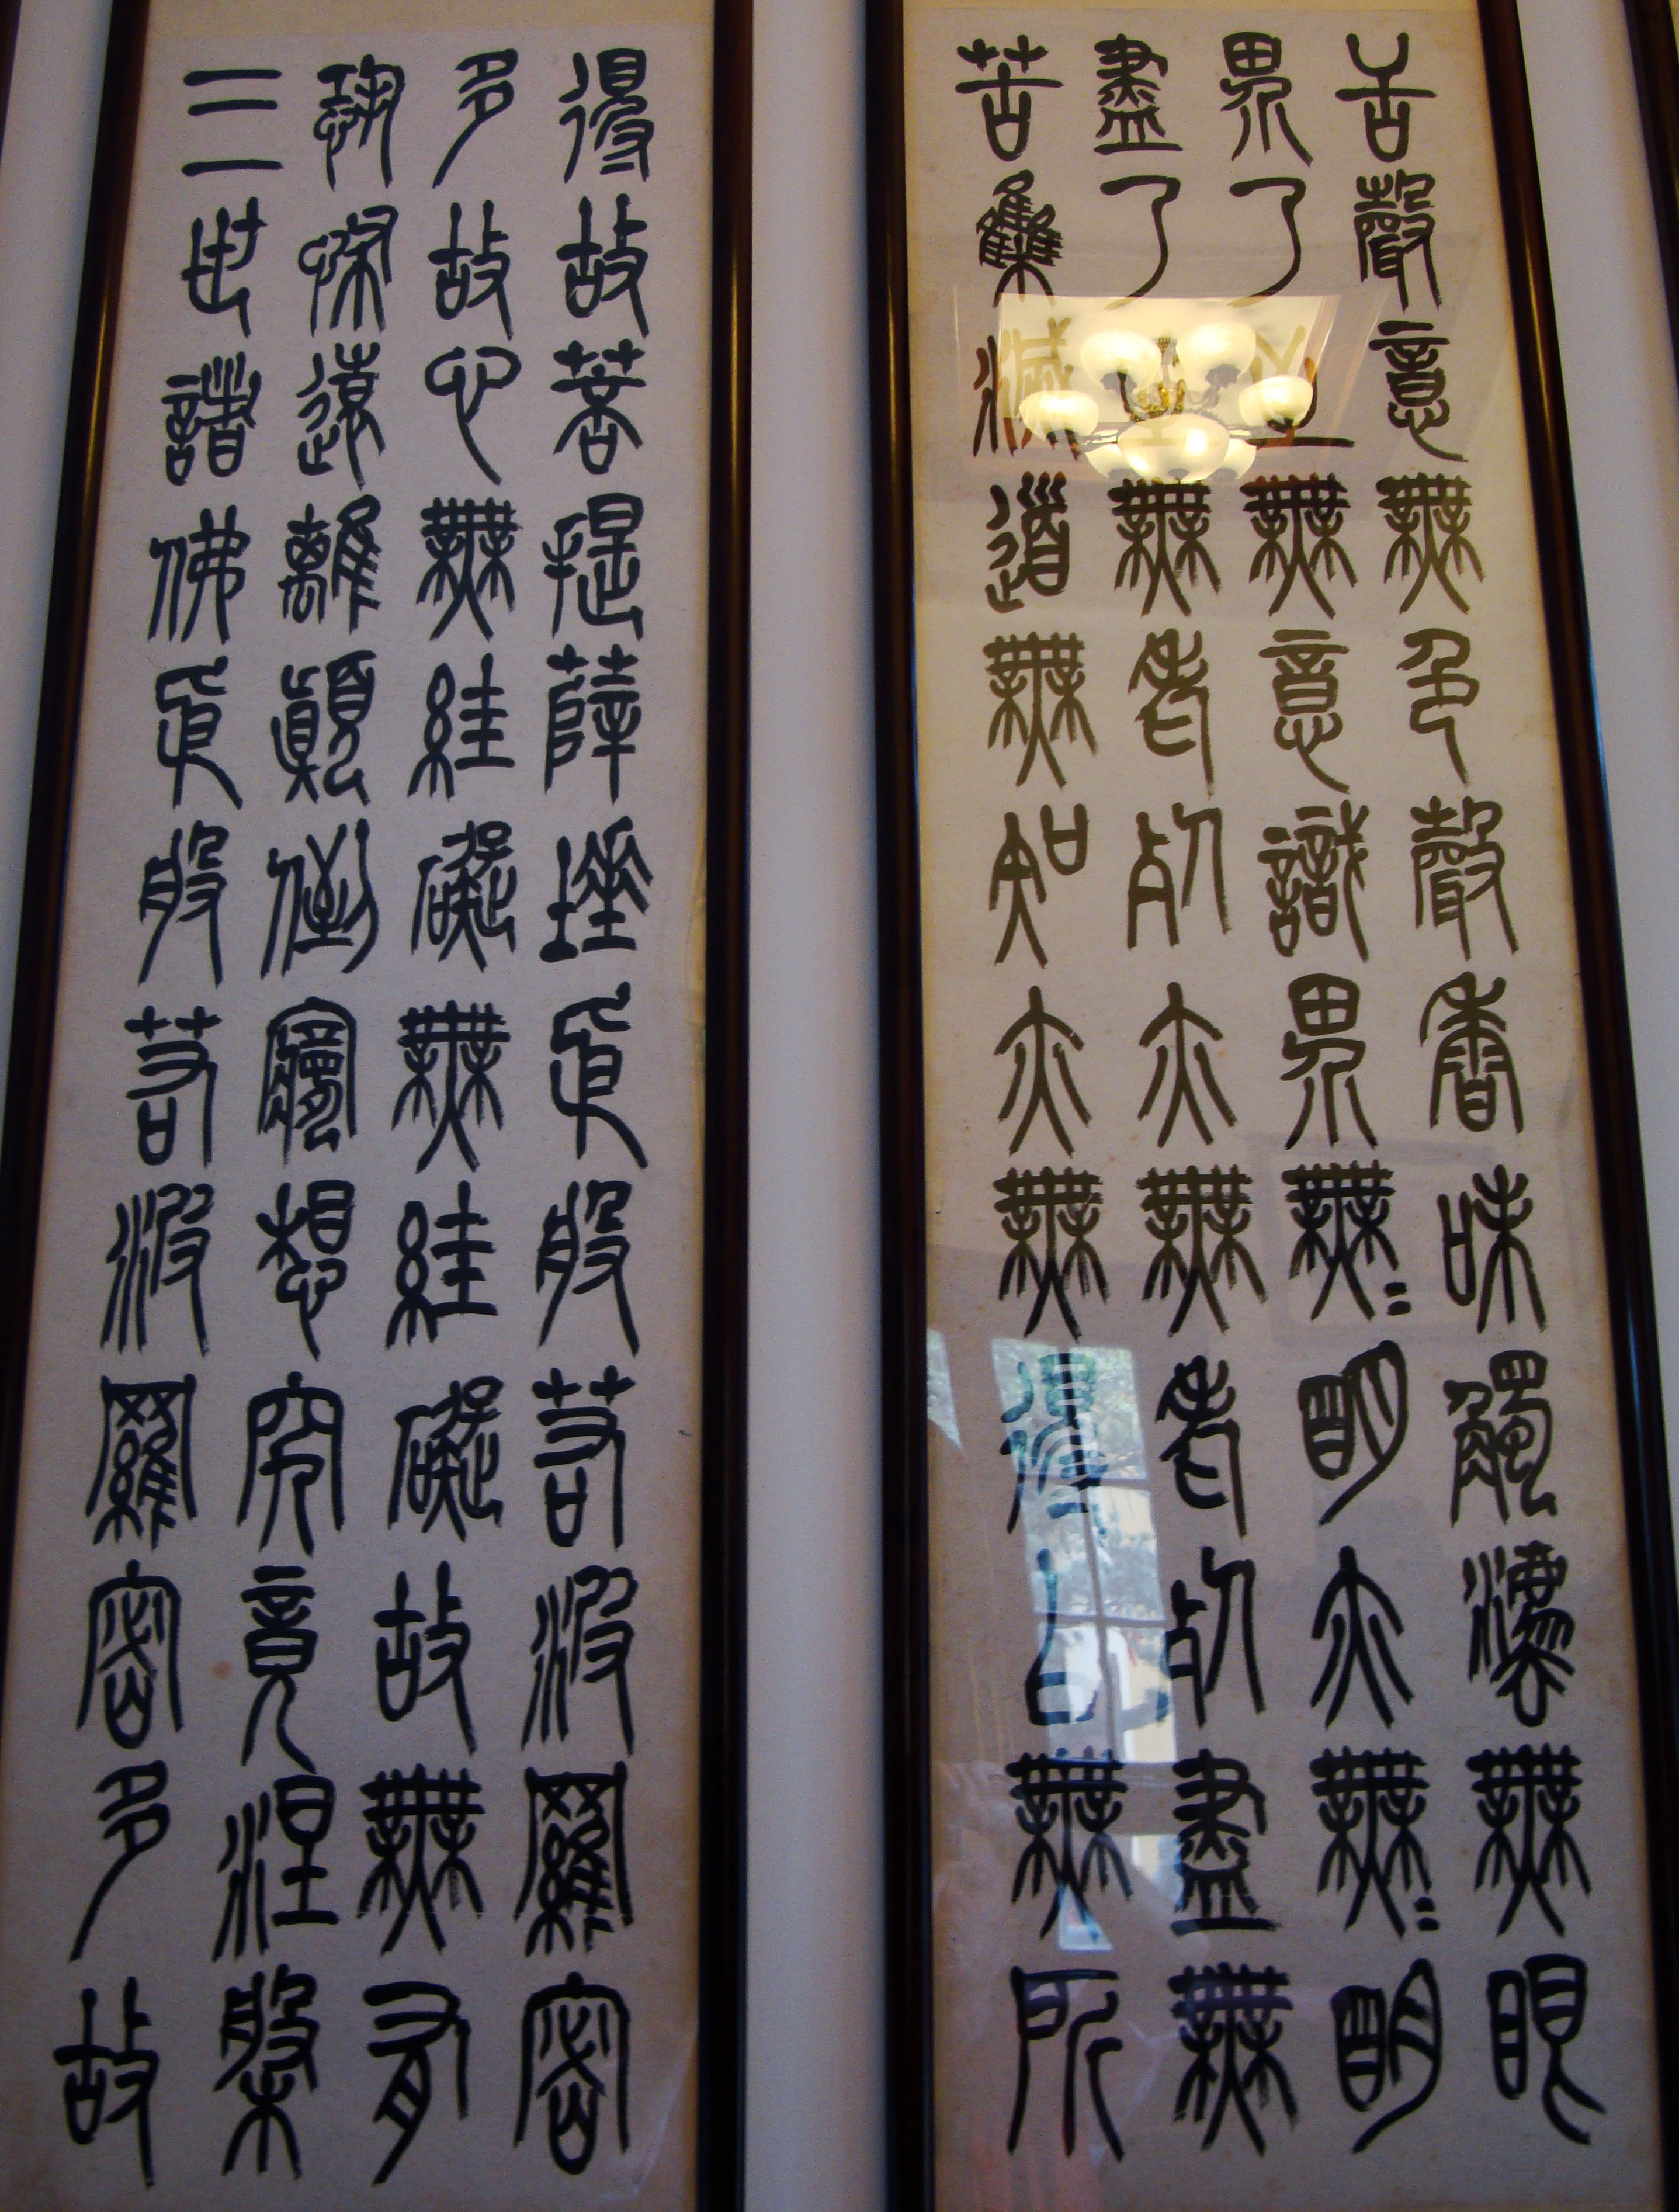 舌聲意無色聲香味觸法無眼
界乃至無意識界無〻明亦無〻明
盡乃至無老死亦無老死盡無
苦集滅道無知亦無得以無所
得故菩提薩埵依般若波羅密
多故心無絓礙無絓礙故無有
恐怖遠離顛倒夢想究竟涅槃
三世諸佛依般若波羅密多故